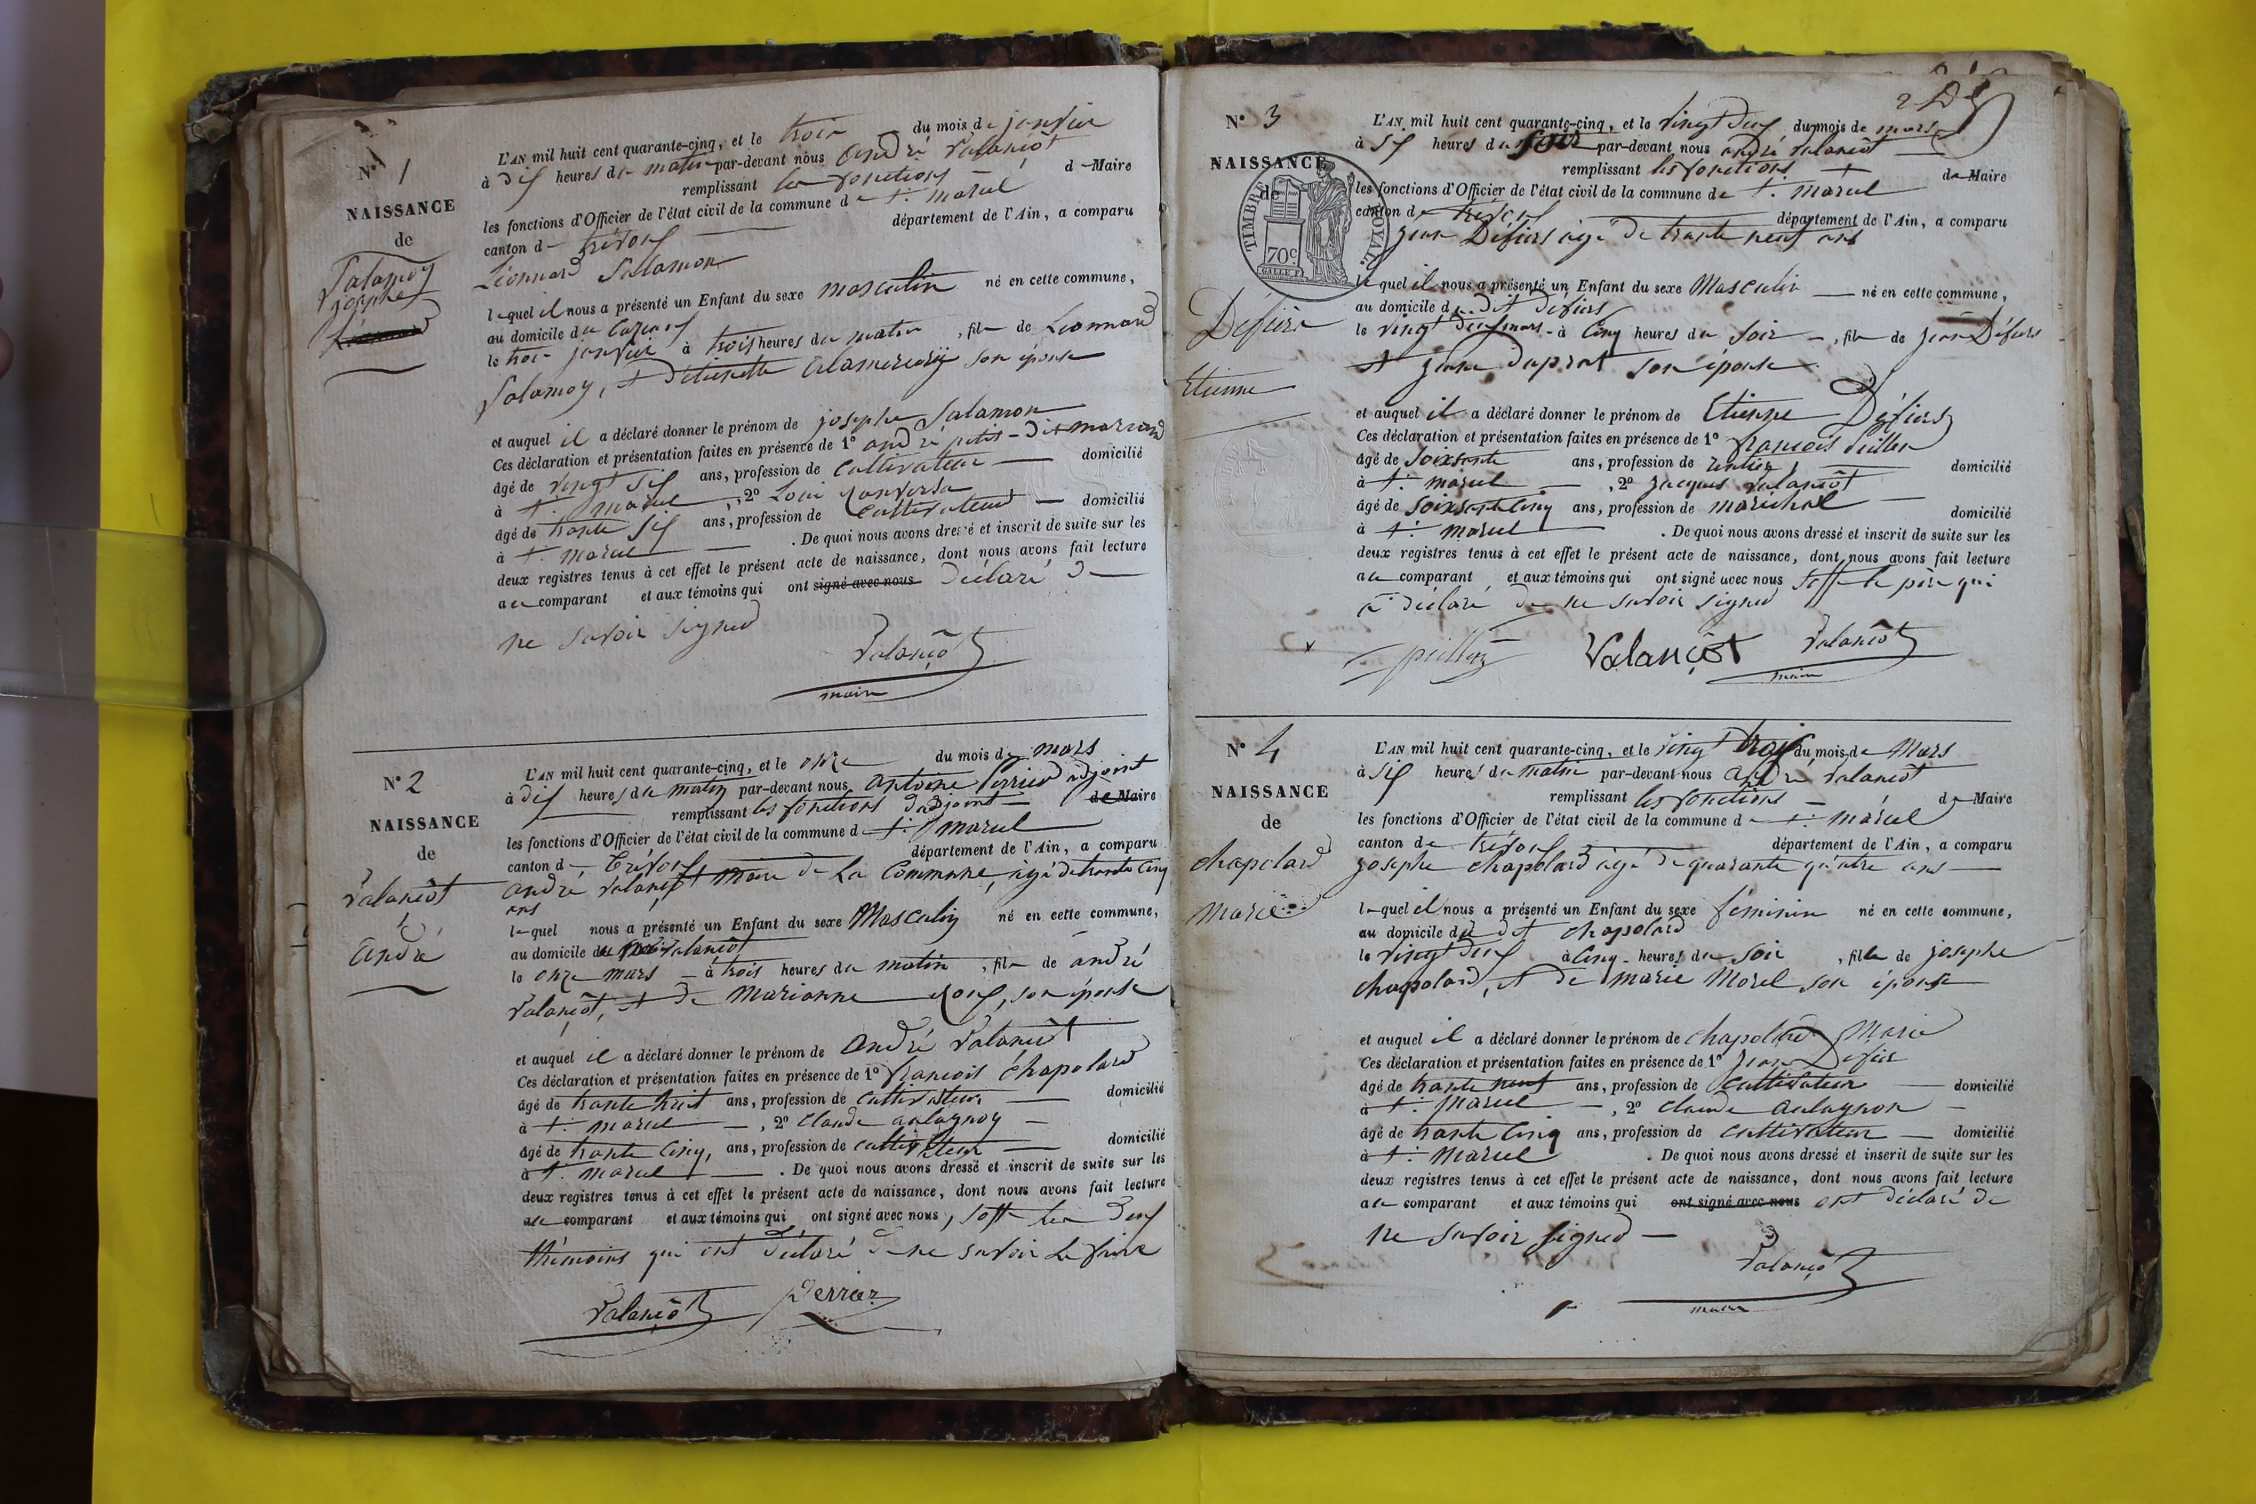 N° 1
NAISSANCE
de
Salamon
josephe
L'AN mil huit cent quarante-cinq, et le trois du mois de janvier
à dix heures du matin par-devant nous André Valançot
remplissant les fonctions de Maire
les fonctions d'Officier de l'état civil de la commune de St. marcel
canton de trévoux département de l'Ain, a comparu
Léonnard Salamon
lequel il nous a présenté un Enfant du sexe masculin né en cette commune,
au domicile du
le trois janvier à trois heures du matin, fils de Léonnard
Salamon, et d'étiennette son épouse
et auquel il a déclaré donner le prénom de josephe Salamon
Ces déclaration et présentation faites en présence de 1° andré petit-dit marrand
âgé de vingt six ans, profession de Cultivateur domicilié
à St. marcel, 2° Loui
âgé de trante six ans, profession de Cultivateur domicilié
à St. marcel. De quoi nous avons dressé et inscrit de suite sur les
deux registres tenus à cet effet le présent acte de naissance, dont nous avons fait lecture
au comparant et aux témoins qui ont signé avec nous déclaré de
ne savoir signer
Valançot
maire
N° 2
NAISSANCE
de
Valançot
André
L'AN mil huit cent quarante-cinq, et le onze du mois de mars
à dix heures du matin par-devant nous Antoine Perrier adjoint
remplissant les fonctions d'adjoint de Maire
les fonctions d'Officier de l'état civil de la commune de St. marcel
canton de Trévoux département de l'Ain, a comparu
André Valançot maire de La Commune, agé de trante Cinq
ans
lequel nous a présenté un Enfant du sexe Masculin né en cette commune,
au domicile du Valançot
le onze mars à trois heures du matin, fils de André
Valançot, et de Marianne Roux, son épouse
et auquel il a déclaré donner le prénom de André Valançot
Ces déclaration et présentation faites en présence de 1° françois Chapolard
âgé de trante huit ans, profession de Cultivateur domicilié
à St. marcel, 2° Claude aulagnon
âgé de trante Cinq, ans, profession de Cultivateur domicilié
à St. marcel. De quoi nous avons dressé et inscrit de suite sur les
deux registres tenus à cet effet le présent acte de naissance, dont nous avons fait lecture
au comparant et aux témoins qui ont signé avec nous, soff les deux
thémoins qui ont déclaré de ne savoir Le faire
Valançot Perrier
N° 3
NAISSANCE
de
TIMBRE ROYAL
70c
Défiers
Etienne
L'AN mil huit cent quarante-cinq, et le vingt deux du mois de mars
à six heures du soir par-devant nous andré Valançot
remplissant les fonctions de Maire
les fonctions d'Officier de l'état civil de la commune de St. marcel
canton de trévoux département de l'Ain, a comparu
jean Défiers agé de trante neuf ans
lequel il nous a présenté un Enfant du sexe Masculin né en cette commune,
au domicile du dit défiers
le vingt deux mars à Cinq heures du Soir, fils de jean Défiers
et jeanne Duprat son épouse
et auquel il a déclaré donner le prénom de Etienne Défiers
Ces déclaration et présentation faites en présence de 1° françois
âgé de Soixsante ans, profession de rentier, domicilié
à St. marcel, 2° jacques Valançot
âgé de Soixsante Cinq ans, profession de maréchal domicilié
à St. marcel. De quoi nous avons dressé et inscrit de suite sur les
deux registres tenus à cet effet le présent acte de naissance, dont nous avons fait lecture
au comparant et aux témoins qui ont signé avec nous soff le père qui
a déclaré de ne savoir signer
Valançot Valançot
maire
N° 4
NAISSANCE
de
Chapolard
Marie
L'AN mil huit cent quarante-cinq, et le vingt trois du mois de Mars
à six heures du matin par-devant nous André Valançot
remplissant les fonctions de Maire
les fonctions d'Officier de l'état civil de la commune de St. marcel
canton de trévoux département de l'Ain, a comparu
josephe Chapolard agé de quarante quatre ans
lequel il nous a présenté un Enfant du sexe féminin né en cette commune,
au domicile du dit chapolard
le vingt deux à Cinq heures du soir, fille de josephe
chapolard, et de marie Morel son épouse
et auquel il a déclaré donner le prénom de chapolard Marie
Ces déclaration et présentation faites en présence de 1° jean Defier
âgé de trante neuf ans, profession de Cultivateur domicilié
à St. Marcel, 2° Claude Aulagnon
âgé de trante Cinq ans, profession de Cultivateur domicilié
à St. Marcel. De quoi nous avons dressé et inscrit de suite sur les
deux registres tenus à cet effet le présent acte de naissance, dont nous avons fait lecture
au comparant et aux témoins qui ont signé avec nous ont déclaré de
ne savoir signer
Valançot
maire